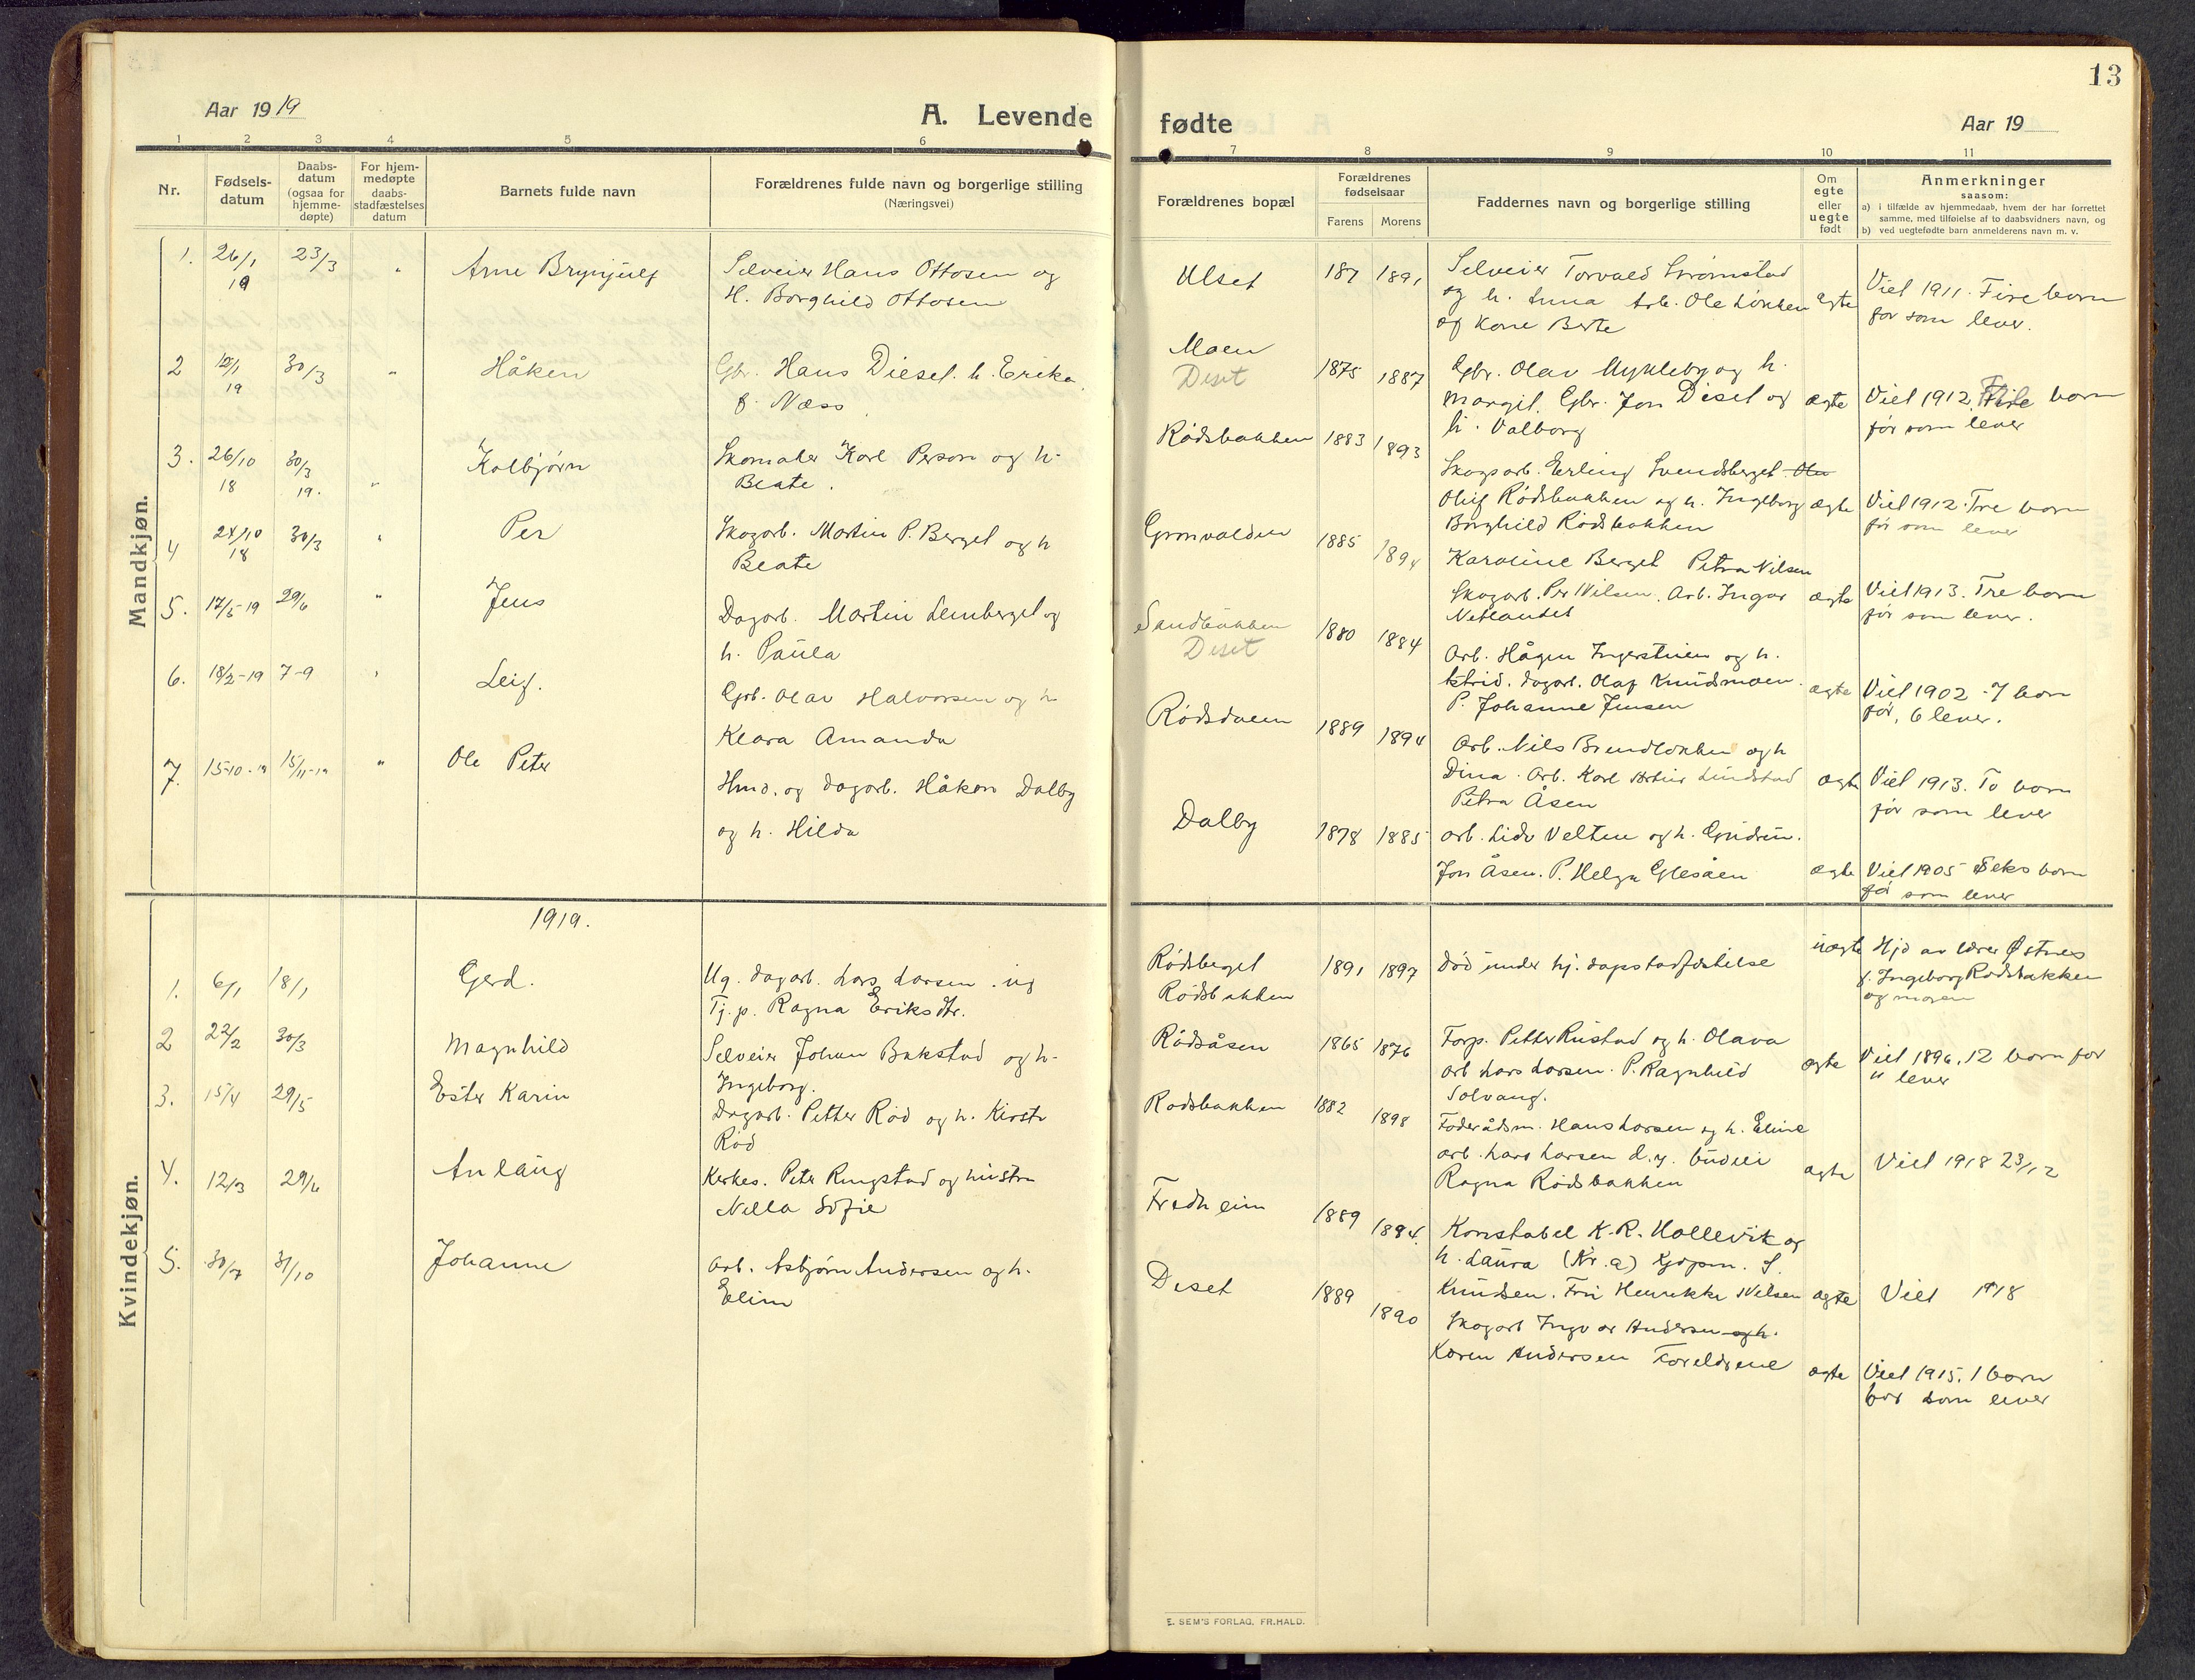 13
Aar 1919
A. Levende
fødte
Aar 19
1 2 3 4 5 6
7 8 9 10 11
Nr.
Fødsels-
datum
Daabs-
datum
(ogsaa for
hjemme-
døpte)
For hjem-
medøpte
daabs-
stadfæstelses
datum
Barnets fulde navn
Forældrenes fulde navn og borgerlige stilling
(Næringsvei)
Forældrenes bopæl
Forældrenes
fødselsaar
Farens Morens
Faddernes navn og borgerlige stilling
Om
egte
eller
uegte
født
Anmerkninger
saasom:
a) i tilfælde av hjemmedaab, hvem der har forrettet
samme, med tilføielse af to daabsvidners navn, og
b) ved uegtefødte barn anmelderens navn m. v.
Mandkjøn.
1. 26/1 19 23/3 " Arne Brynjulf
Selveier Hans Ottosen og
H. Borghild Ottosen
Ulset 187 1891
Selveier Torvald Strømstad
og h. Anna Arb. Ole Løkken
og kone Berte
ægte
Viet 1911. Fire born
før som lever.
2 12/1 19 30/3 " Håken
Gbr. Hans Dieset. h. Erika
f. Næss
Moen
Deset
1875 1887
Gbr. Olav Mykleby og h.
Margit. Gbr. Jon Deset og
h. Valborg
ægte
Viet 1912 Fire born
før som lever
3. 26/10 18 30/3 19. " Kolbjørn
Skomaker Karl Person og h.
Beate.
Rødsbakken 1883 1893
Skogsarb. Erling Svendsberget
Oluf Rødsbakken og h. Ingeborg
Borghild Rødsbakken
ægte
Viet 1912. Tre born
før som lever
4 24/10 18 30/3 " Per
Skogarb. Martin P. Berget og h
Beate
Grønvolden 1885 1894
Karoline Berget Petra Nilsen
Skogarb. Per Nilsen. Arb. Ingar
Netlandet
ægte
Viet 1913. Tre born
før som lever.
5. 17/5-19 29/6 " Jens
Dagarb. Martin Lemberget og
h. Paula
Sandbakken
Deset
1880 1884
Arb. Hågen Ingerstuen og h.
Astrid. Dagarb. Olaf Knudsmoen.
P. Johanne Jensen
ægte
Viet 1902 - 7 born
før, 6 lever.
6. 18/2-19 7-9 " Leif.
Grb. Olav Halvorsen og h
Klara Amanda
Rødsdalen 1889 1894
Arb. Nils Brendløkken og h
Dina. Arb. Karl Artur Lundstad
Petra Åsen
ægte
Viet 1913. To born
før som lever
7. 15-10-19 15/11-19 " Ole Peter
Hmd. og dagarb. Håkon Dalby
og h. Hilda
Dalby 1878 1885
Arb. Lidv Velten og h. Gudrun.
Jon Åsen. P. Helga Glesåen
ægte
Viet 1905 Seks born
før som lever
Kvindekjøn.
1919.
1. 6/1 18/1 Gerd.
Ug. dagarb. Lars Larsen. ug
Tj. p. Ragna Eriksdtr.
Rødsberget
Rødsbakken
1891 1897
Død under hj. dapstadfæstelse
uægte
Hjd av lærer Østnes
f. Ingeborg Rødsbakken
og moren
2 22/2 30/3 Magnhild
Selveier Johan Bakstad og h.
Ingeborg.
Rødsåsen 1865 1876
Forp. Petter Rustad og h. Olava
arb Lars Larsen. P. Ragnhild
Solvang.
ægte
Viet 1896. 12 born før
11 lever
3. 15/4 29/5 Ester Karin
Dagarb. Petter Rød og h. Kirsti
Rød
Rødsbakken 1882 1898
Føderådsm. Hans Larsen og h. Eline
arb. Lars Larsen d.y. Budeie
Ragna Rødsbakken
ægte
Viet 1918 23/12
4. 12/3 29/6 Anlaug
Kerkes. Peter Ringstad og hustru
Nella Sofie
Fredheim 1889 1894.
Konstabel K. R. Hollevik og
h. Laura (Nr. a) Kjøpm. S.
Knudsen. Fru Henrikke Nilsen
ægte
Viet 1918
5. 30/7 31/10 Johanne
Arb. Asbjørn Andersen og h.
Elim
Deset 1889 1890
Skogarb Ingvar Andersen og h.
Karen Andersen Foreldrene
ægte
Viet 1915. 1 born
før som lever
E. SEM'S FORLAG, FR.HALD.